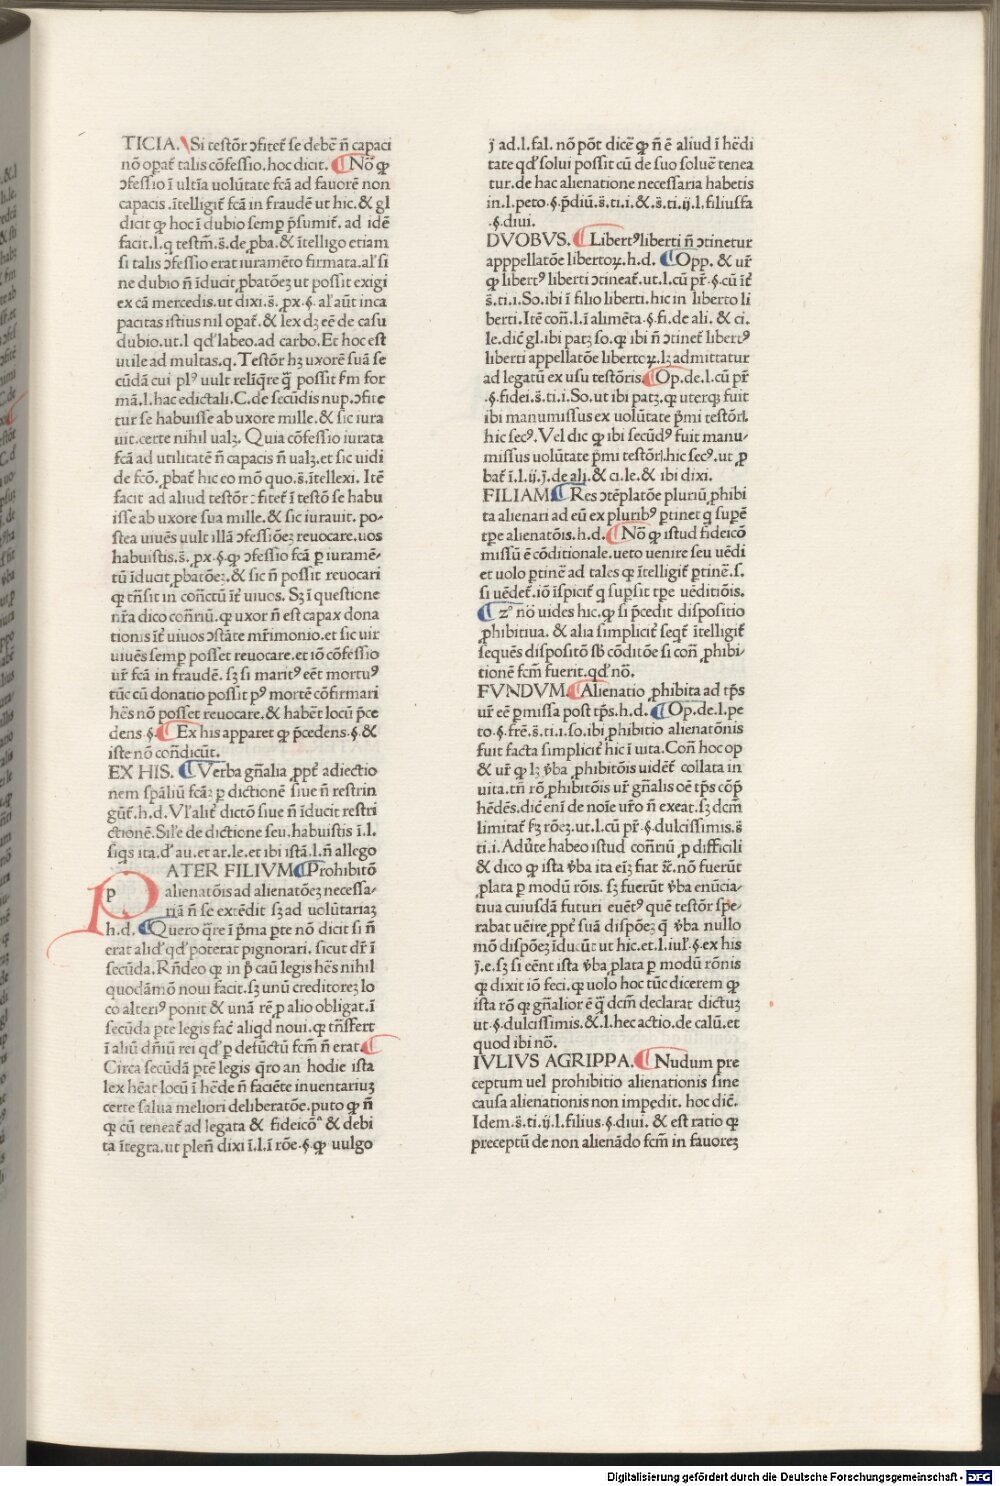 TICIA. Si testõr ɔfitet᷑ se debē ñ capaci
nõ opat᷑ talis cõfessio. hoc dicit. ¶ Nõ ꝙ
ɔfessio ī ultīa uolũtate fcã ad fauorē non
capacis. ītelligit᷑ fcã in fraudē ut hic. & gl
dicit ꝙ hoc ī dubio semꝑ p̄sumit᷑. ad idē
facit. l. q testm̄. s̄. de ꝓba. & ītelligo etiam
si talis ɔfessio erat iuramēto firmata. al' si
ne dubio ñ īducit ꝓbatõeꝫ ut possit exigi
ex cã mercedis. ut dixi. s̄. ꝓx. §. al' aũt inca
pacitas istius nil opat᷑. & lex dꝫ eē de casu
dubio. ut. l qd' labeo. ad carbo. Et hoc est
utile ad multas. q. Testõr hꝫ uxorē suã se
cũdã cui pl⁹ uult relīq̃re q̃ possit fm for
mã. l. hac edictali. C. de secũdis nup. ɔfite
tur se habuisse ab uxore mille. & sic iura
uit. certe nihil ualꝫ. Quia cõfessio iurata
fcã ad utilitatē ñ capacis ñ ualꝫ. et sic uidi
de fcõ. ꝓbat᷑ hic eo mõ quo. s̄. ītellexi. Itē
facit ad aliud testõr ɔfitet᷑ ī testõ se habu
isse ab uxore sua mille. & sic iurauit. po-
stea uiuēs uult illã ɔfessiõeꝫ reuocare. uos
habuistis. s̄. ꝓx. §. ꝙ ɔfessio fcã ꝑ iuramē-
tũ īducit ꝓbatõeꝫ. & sic ñ possit reuocari
ꝙ trñsit in coñctũ īt᷑ uiuos. Sꝫ ī questione
nr̄a dico coñriũ. ꝙ uxor ñ est capax dona
tionis īt᷑ uiuos ɔstãte mr̄imonio. et sic uir
uiuēs semꝑ posset reuocare. et iõ cõfessio
ur̄ fcã in fraudē. sꝫ si marit⁹ eēt mortu⁹
tũc cũ donatio possit p⁹ mortē cõfirmari
hēs nõ posset reuocare. & habēt locũ p̄ce
dens §. ¶ Ex his apparet ꝙ p̄cedens. §. &
iste nõ coñdicũt.
EX HIS. ¶ Verba gñalia ꝓpt᷑ adiectio
nem spãliũ fcãꝫ ꝑ dictionē siue ñ restrin
gũt᷑. h. d. Vl' alit᷑ dictõ siue ñ īducit restri
ctionē. Sil'e de dictione seu. habuistis ī. l.
siqs ita. d' au. et ar. le. et ibi istã. l. ñ allego
PATER FILIVM ¶ Prohibitõ
alienatõis ad alienatõeꝫ necessa-
riã ñ se extēdit sꝫ ad uolũtariaꝫ
h. d. ¶ Quero q̃re ī p̄ma pte nõ dicit si ñ
erat alid' qd' poterat pignorari. sicut dr̄ ī
secũda. Rñdeo ꝙ in p̄ caũ legis hēs nihil
quodãmõ noui facit. sꝫ unũ creditoreꝫ lo
co alteri⁹ ponit & unã rē ꝓ alio obligat. ī
secũda pte legis fac̄ aliqd noui. ꝙ trñsfert
ī aliũ dñiũ rei qd' ꝑ defũctũ fcm̄ ñ erat. ¶
Circa secũdã ptē legis q̃ro an hodie ista
lex hēat locũ ī hēde ñ faciēte inuentariuꝫ
certe salua meliori deliberatõe. puto ꝙ ñ
ꝙ cũ teneat᷑ ad legata & fideicõᵃ & debi
ta ītegra. ut pleñ dixi ī. l. ī rõe. §. ꝙ uulgo
j̄ ad. l. fal. nõ põt dicē ꝙ ñ ē aliud ī hēdi
tate qd' solui possit cũ de suo soluē tenea
tur. de hac alienatione necessaria habetis
in. l. peto. §. p̄diũ. s̄. ti. i. & s̄. ti. ij. l. filiusfa
. §. diui.
DVOBVS. ¶ Libert⁹ liberti ñ ɔtinetur
apppellatõe libertoꝝ. h. d. ¶ Opp. & ur̄
ꝙ libert⁹ liberti ɔtineat᷑. ut. l. cũ pr̄. §. cũ īt᷑
s̄. ti. i. So. ibi ī filio liberti. hic in liberto li
berti. Itē coñ. l. ī alimēta. §. fi. de ali. & ci.
le. dic̄ gl. ibi patꝫ so. ꝙ ibi ñ ɔtinet᷑ libert⁹
liberti appellatõe libertoꝝ. lꝫ admittatur
ad legatũ ex usu testõris. ¶ Op. de. l. cũ pr̄
. §. fidei. s̄. ti. i. So. ut ibi patꝫ. ꝙ uterqꝫ fuit
ibi manumissus ex uolũtate p̄mi testõrĩ.
hic sec⁹. Vel dic ꝙ ibi secũd⁹ fuit manu-
missus uolũtate p̄mi testõrĩ. hic sec⁹. ut ꝓ
bat᷑ ī. l. ij. j̄. de ali. & ci. le. & ibi dixi.
FILIAM ¶ Res ɔtēplatõe pluriũ ꝓhibi
ta alienari ad eũ ex plurib⁹ ꝑtinet q supē
tꝑe alienatõis. h. d. ¶ Nõ ꝙ istud fideicõ
missũ ē cõditionale. ueto uenire seu uēdi
et uolo ꝑtinē ad tales ꝙ ītelligit᷑ ꝑtinē. s.
si uēdet᷑. iõ īspicit᷑ q supsit tꝑe uēditiõis.
¶ 2° nõ uides hic. ꝙ si p̄cedit dispositio
ꝓhibitiua. & alia simplicit᷑ seqt᷑ ītelligit᷑
sequēs dispositõ sb̄ cõditõe si coñ ꝓhibi-
tionē fcm̄ fuerit. qd' nõ.
FVNDVM. ¶ Alienatio ꝓhibita ad tp̄s
ur̄ eē ꝑmissa post tp̄s. h. d. ¶ Op. de. l. pe
to. §. frē. s̄. ti. i. so. ibi ꝓhibitio alienatõnis
fuit facta simplicit᷑ hic ī uita. Coñ hoc op
& ur̄ ꝙ lꝫ v̄ba ꝓhibitõis uidēt᷑ collata in
uita. tñ rõ ꝓhibitõis ur̄ gñalis oē tp̄s cõp̄
hēdēs. dic̄ enī de noīe ur̄o ñ exeat. sꝫ dcm̄
limitat᷑ fꝫ rõeꝫ. ut. l. cũ pr̄. §. dulcissimis. s̄
ti. i. Adũte habeo istud coñriũ ꝓ difficili
& dico ꝙ ista v̄ba ita eiꝫ fiat &c̄. nõ fuerũt
ꝓlata ꝑ modũ rõis. sꝫ fuerũt v̄ba enũcia-
tiua cuiusdã futuri euēt⁹ quē testõr spe-
rabat uēire ꝓpt᷑ suã dispõeꝫ q̃ v̄ba nullo
mõ dispõeꝫ īducũt ut hic. et. l. iul'. §. ex his
j̄. e. sꝫ si eēnt ista v̄ba ꝓlata ꝑ modũ rõnis
ꝙ dixit iõ feci. ꝙ uolo hoc tũc dicerem ꝙ
ista rõ ꝙ gñalior ē q̃ dcm̄ declarat dictuꝫ
ut. §. dulcissimis. &. l. hec actio. de calũ. et
quod ibi nõ.
IVLIVS AGRIPPA. ¶ Nudum pre
ceptum uel prohibitio alienationis sine
causa alienationis non impedit. hoc dic̄.
Idem. s̄. ti. ij. l. filius. §. diui. & est ratio ꝙ
preceptũ de non alienãdo fcm̄ in fauoreꝫ
Digitalisierung gefördert durch die Deutsche Forschungsgemeinschaft - DFG